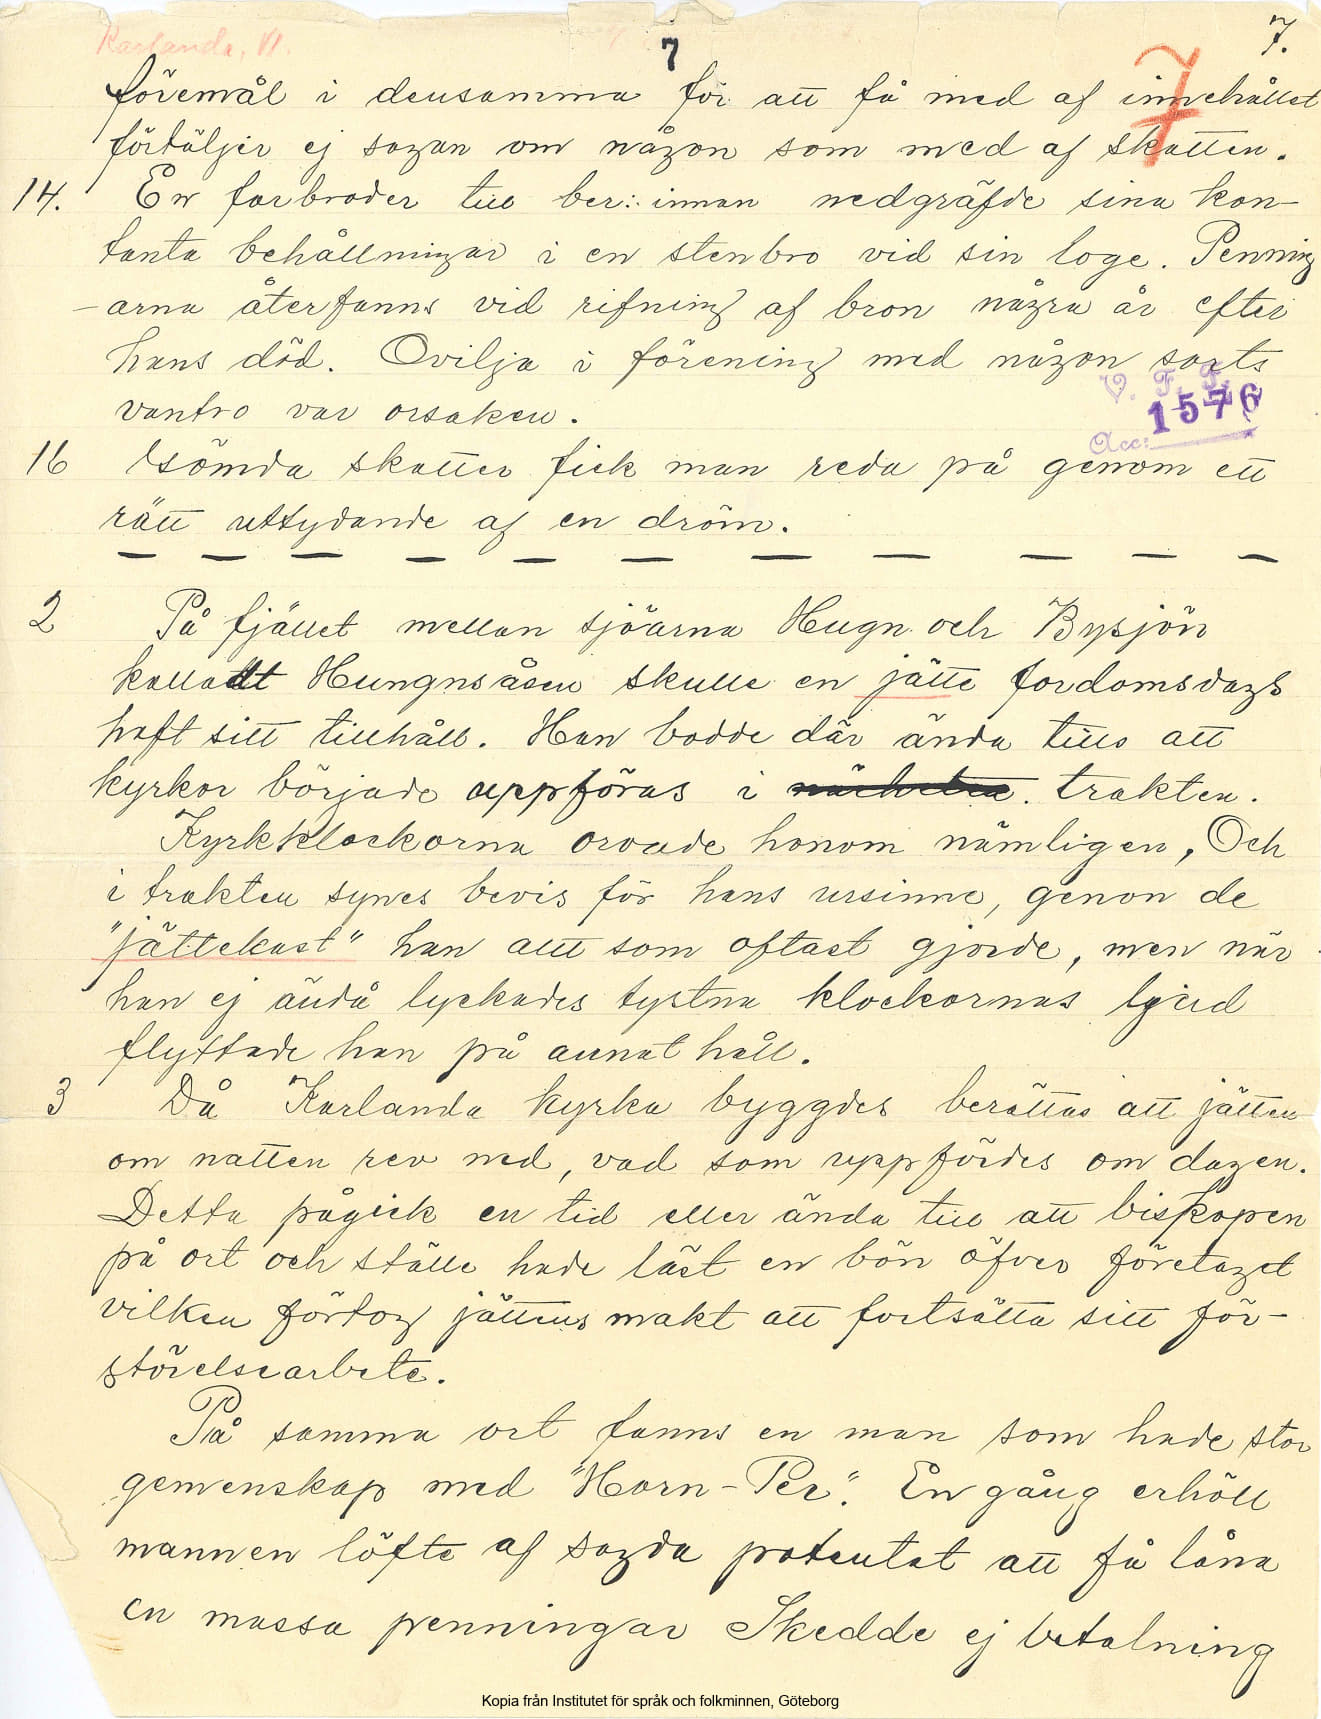 Karlanda, Vl.
7
7.
7
föremål i densamma för att få med af innehållet
förtäljer ej sagan om någon som med af skatten.
14. En farbroder till ber:innan nedgräfde sina kon-
tanta behållningar i en stenbro vid sin loge. Penning
-arna återfanns vid rifning af bron några år efter
hans död. Ovilja i förening med någon sorts
vantro var orsaken.
V. F. F.
1576
Acc:
16 Gömda skatter fick man reda på genom ett
rätt uttydande af en dröm.
2 På fjället mellan sjöarna Hugn och Bysjön
kalladt Hungnsåsen skulle en jätte fordomsdags
haft sitt tillhåll. Han bodde där ända tills att
kyrkor började uppföras i trakten.
Kyrkklockorna oroade honom nämligen, Och
i trakten synes bevis för hans ursinne, genon de
"jättekast" han allt som oftast gjorde, men när
han ej ändå lyckades tystna klockornas ljud
flyttade han på annat håll.
3 Då Karlanda kyrka byggdes berättas att jätten
om natten rev ned, vad som uppfördes om dagen.
Detta pågick en tid eller ända till att biskopen
på ort och ställe hade läst en bön öfver företaget
vilken förtog jättens makt att fortsätta sitt för-
störelsearbete.
På samma ort fanns en man som hade stor
gemenskap med "Horn-Per". En gång erhöll
mannen löfte af sagda potentat att få låna
en massa penningar Skedde ej betalning
Kopia från Institutet för språk och folkminnen, Göteborg